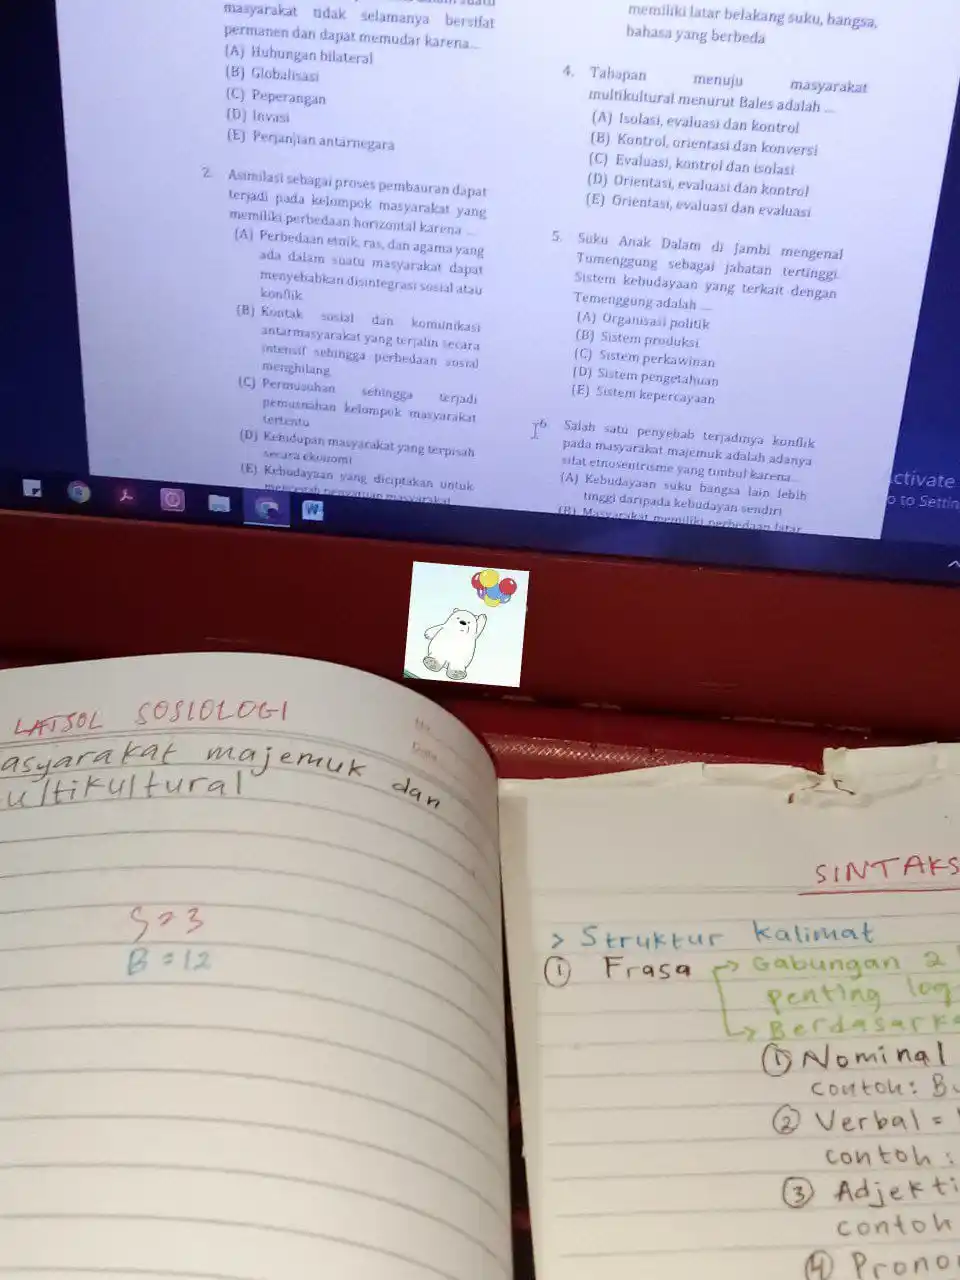 masyarakat tidak selamanya bersifat
permanen dan dapat memudar karena...
(A) Hubungan bilateral
(B) Globalisasi
(C) Peperangan
(D) Invasi
(E) Perjanjian antarnegara
2. Asimilasi sebagai proses pembauran dapat
terjadi pada kelompok masyarakat yang
memiliki perbedaan horizontal karena ...
(A) Perbedaan etnik, ras, dan agama yang
ada dalam suatu masyarakat dapat
menyebabkan disintegrasi sosial atau
konflik
(B) Kontak sosial dan komunikasi
antarmasyarakat yang terjalin secara
intensif sehingga perbedaan sosial
menghilang
(C) Permusuhan sehingga terjadi
pemusnahan kelompok masyarakat
tertentu
(D) Kehidupan masyarakat yang terpisah
secara ekonomi
(E) Kebudayaan yang diciptakan untuk
mencegah penyatuan masyarakat
memiliki latar belakang suku, bangsa,
bahasa yang berbeda
4. Tahapan menuju masyarakat
multikultural menurut Bales adalah ...
(A) Isolasi, evaluasi dan kontrol
(B) Kontrol, orientasi dan konversi
(C) Evaluasi, kontrol dan isolasi
(D) Orientasi, evaluasi dan kontrol
(E) Orientasi, evaluasi dan evaluasi
5. Suku Anak Dalam di Jambi mengenal
Tumenggung sebagai jabatan tertinggi.
Sistem kebudayaan yang terkait dengan
Temenggung adalah ...
(A) Organisasi politik
(B) Sistem produksi
(C) Sistem perkawinan
(D) Sistem pengetahuan
(E) Sistem kepercayaan
6. Salah satu penyebab terjadinya konflik
pada masyarakat majemuk adalah adanya
sifat etnosentrisme yang timbul karena...
(A) Kebudayaan suku bangsa lain lebih
tinggi daripada kebudayan sendiri
(B) Masyarakat memiliki perbedaan latar
ctivate
o to Settin
LATSOL SOSIOLOGI
asyarakat majemuk dan
ultikultural
S = 3
B = 12
SINTAKS
> Struktur kalimat
① Frasa → Gabungan 2
penting log
→ Berdasarka
① Nominal
contoh: B
② Verbal =
contoh:
③ Adjekti
contoh
④ Prono